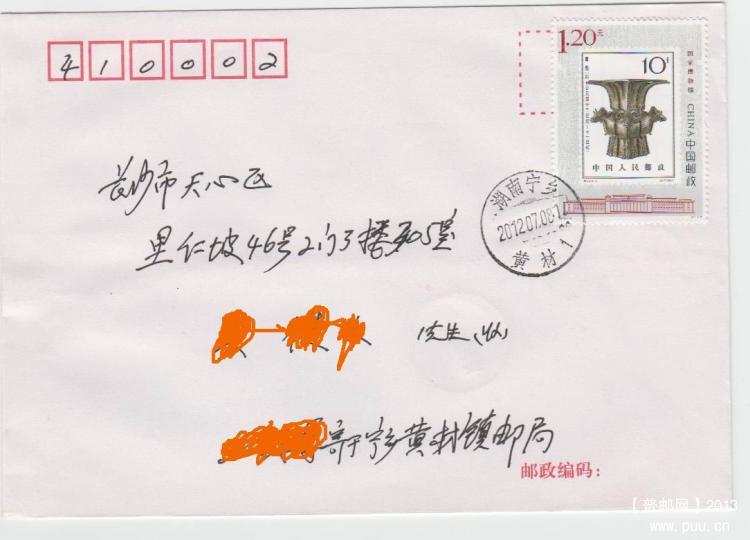 410002
1.20元
10分
国家博物馆
CHINA 中国邮政
中国人民邮政
湖南宁乡
2012.07.08.1
黄材1
长沙市天心区
里仁坡46号2门
先生(收)
寄于宁乡黄材镇邮局
邮政编码:
【普邮网】2013
www.puu.cn